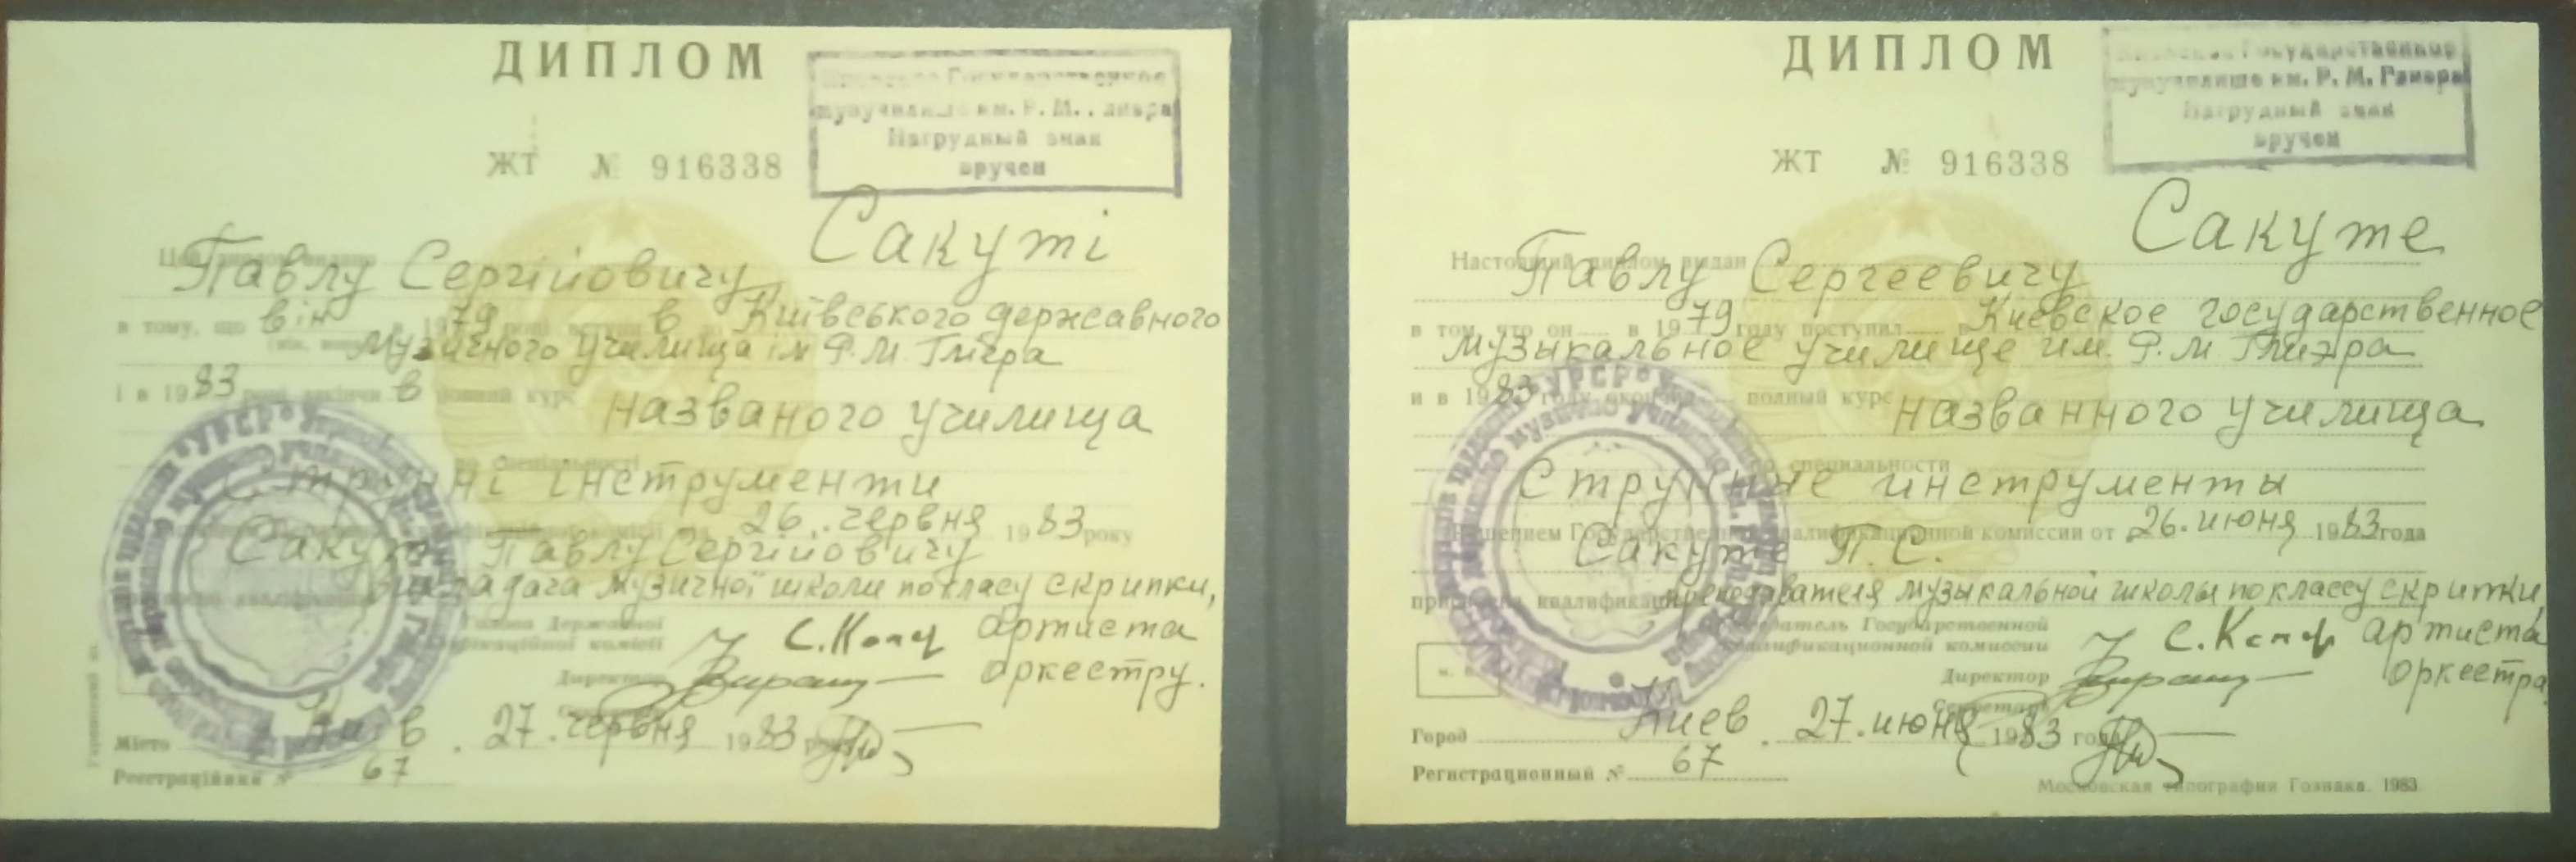 ДИПЛОМ
Киевское Государственное
музучилище им. Р. М. Глиэра
Нагрудный знак
вручен
ЖТ № 916338
Сакуті
Цей диплом видано
Павлу Сергійовичу
в тому, що він в 1979 році вступив до Київського державного
музичного училища ім Р.М Глієра
і в 1983 році закінчив повний курс
названого училища
по спеціальності
Струнні інструменти
комісії від 26. червня 1983 року
Сакуті Павлу Сергійовичу
кваліфікацію викладача музичної школи по класу скрипки,
Голова Державної
кваліфікаційної комісії артиста
Директор оркестру.
Місто Київ. 27. червня 1983 року
Реєстраційний № 67
ДИПЛОМ
Киевское Государственное
музучилище им. Р. М. Глиэра
Нагрудный знак
вручен
ЖТ № 916338
Сакуте
Настоящий диплом выдан
Павлу Сергеевичу
в том, что он в 1979 году поступил в Киевское государственное
музыкальное училище им. Р.М Глиэра
и в 1983 году окончил полный курс
названного училища
по специальности
Струнные инструменты
Решением Государственной квалификационной комиссии от 26. июня 1983 года
Сакуте П. С.
присвоена квалификация преподавателя музыкальной школы по классу скрипки,
Председатель Государственной
квалификационной комиссии артиста
Директор оркестра
Секретарь
М. П.
Город Киев. 27. июня 1983 года
Регистрационный № 67
Московская типография Гознака. 1983.